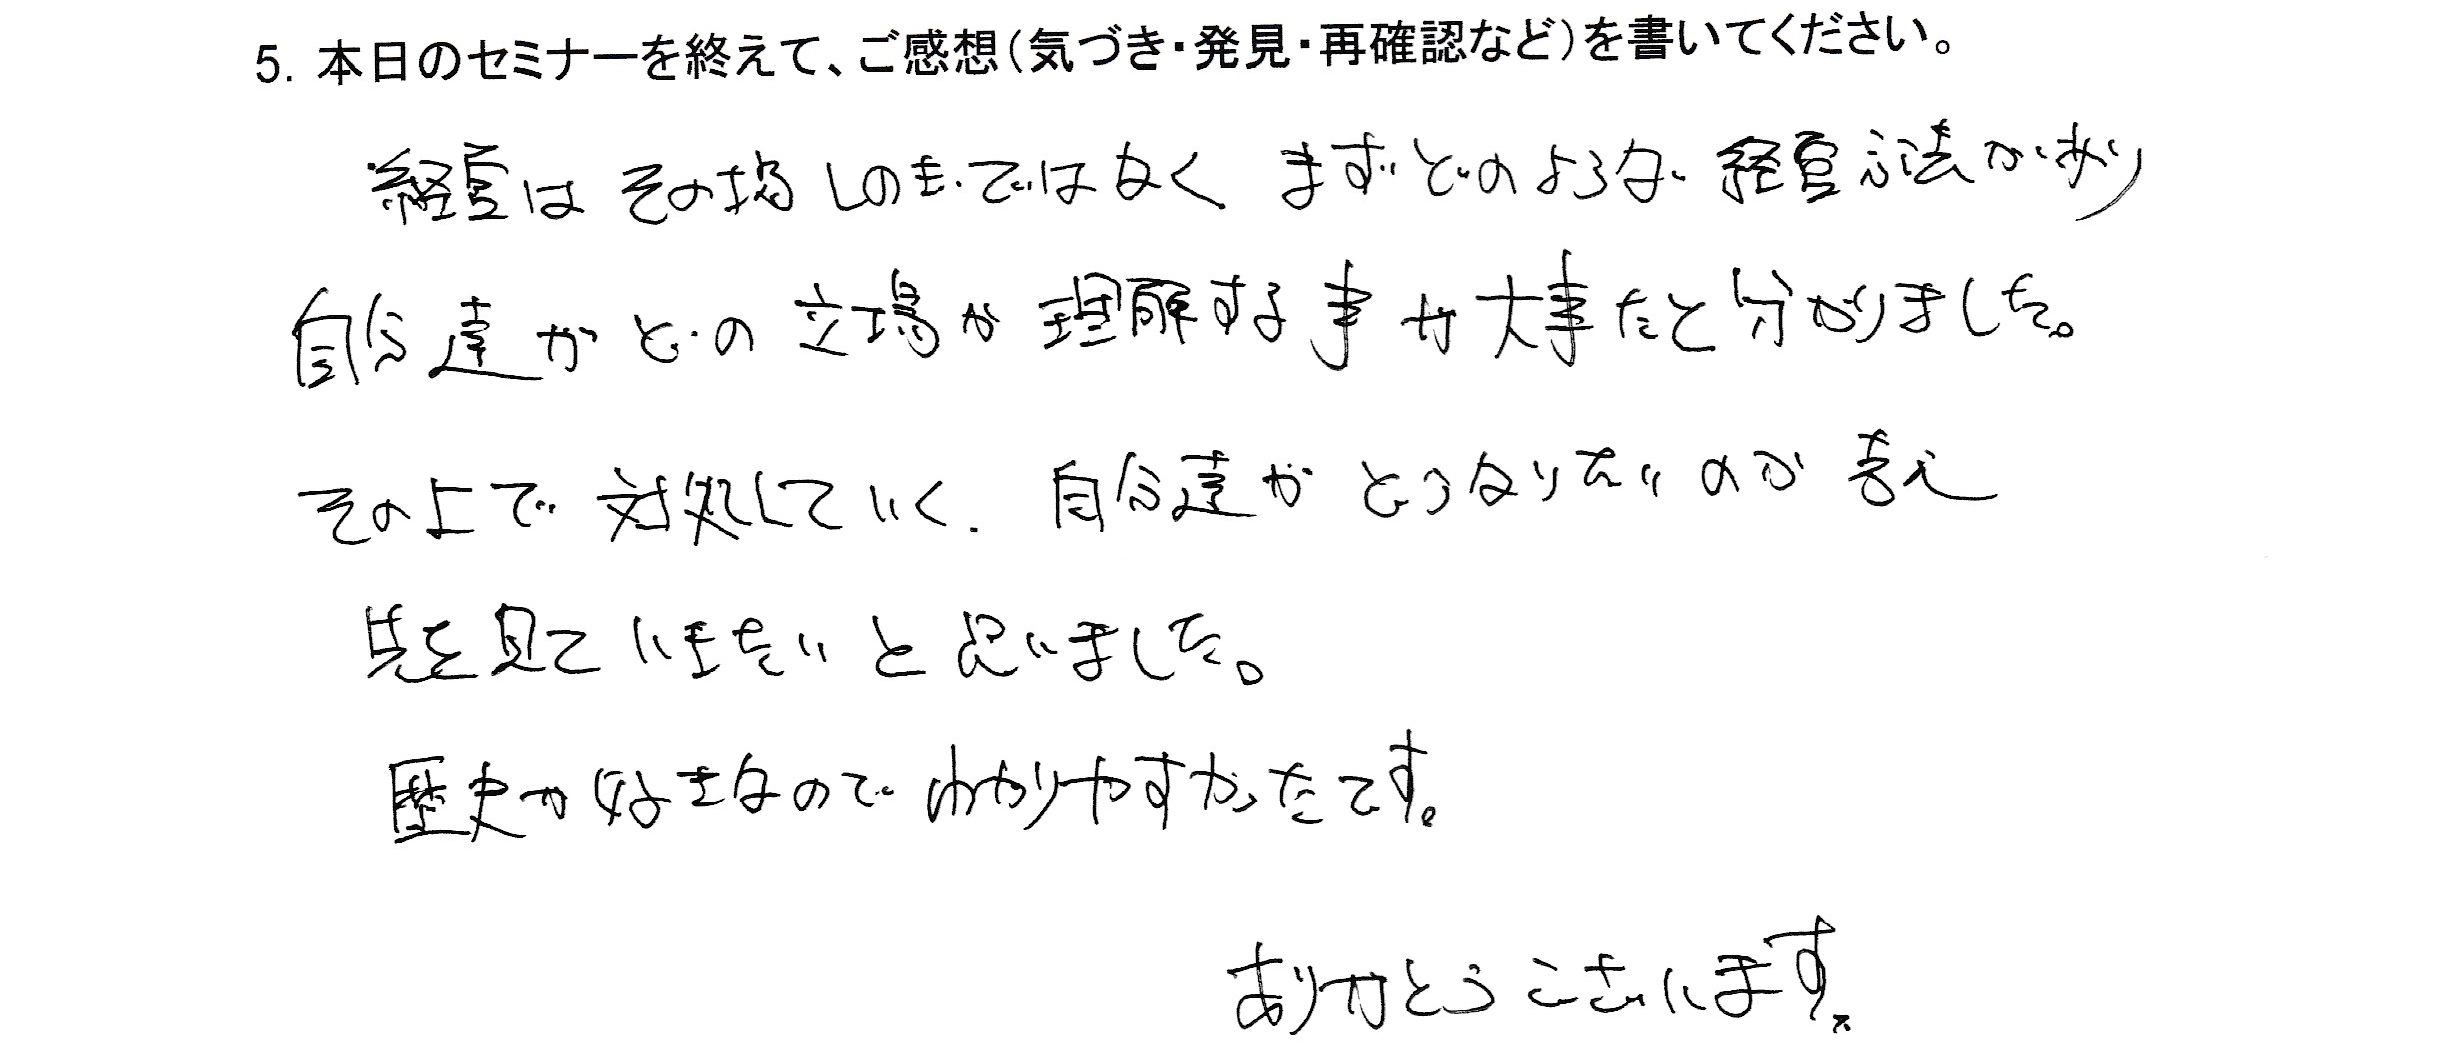 5. 本日のセミナーを終えて、ご感想(気づき・発見・再確認など)を書いてください。
経営はその場しのぎではなく まずどのような経営方法があり
自分達がどの立場か理解する事が大事だと分かりました。
その上で対処していく. 自分達がどうなりたいのか考え
先を見ていきたいと思いました。
歴史が好きなのでわかりやすかったです。
ありがとうございます。